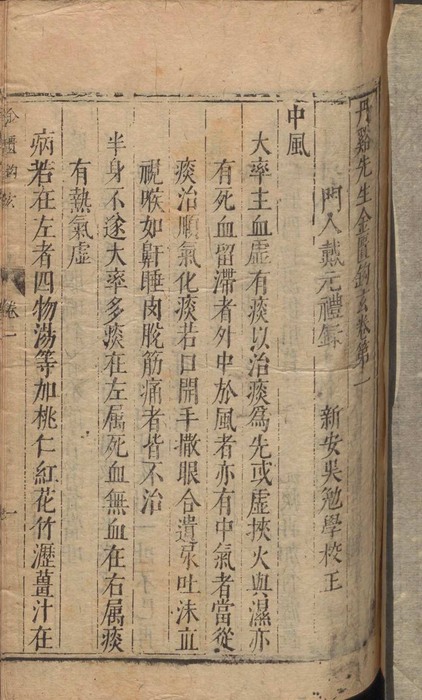 丹谿先生金匱鈎玄卷第一
門人戴元禮錄　新安吳勉學校正
中風
大率主血虛有痰以治痰爲先或虛挾火與濕亦
有死血留滯者外中於風者亦有中氣者當從
痰治順氣化痰若口開手撒眼合遺尿吐沫直
視喉如鼾睡肉脫筋痛者皆不治
半身不遂大率多痰在左屬死血無血在右屬痰
有熱氣虛
病若在左者四物湯等加桃仁紅花竹瀝薑汁在
金匱鈎玄　卷一　一